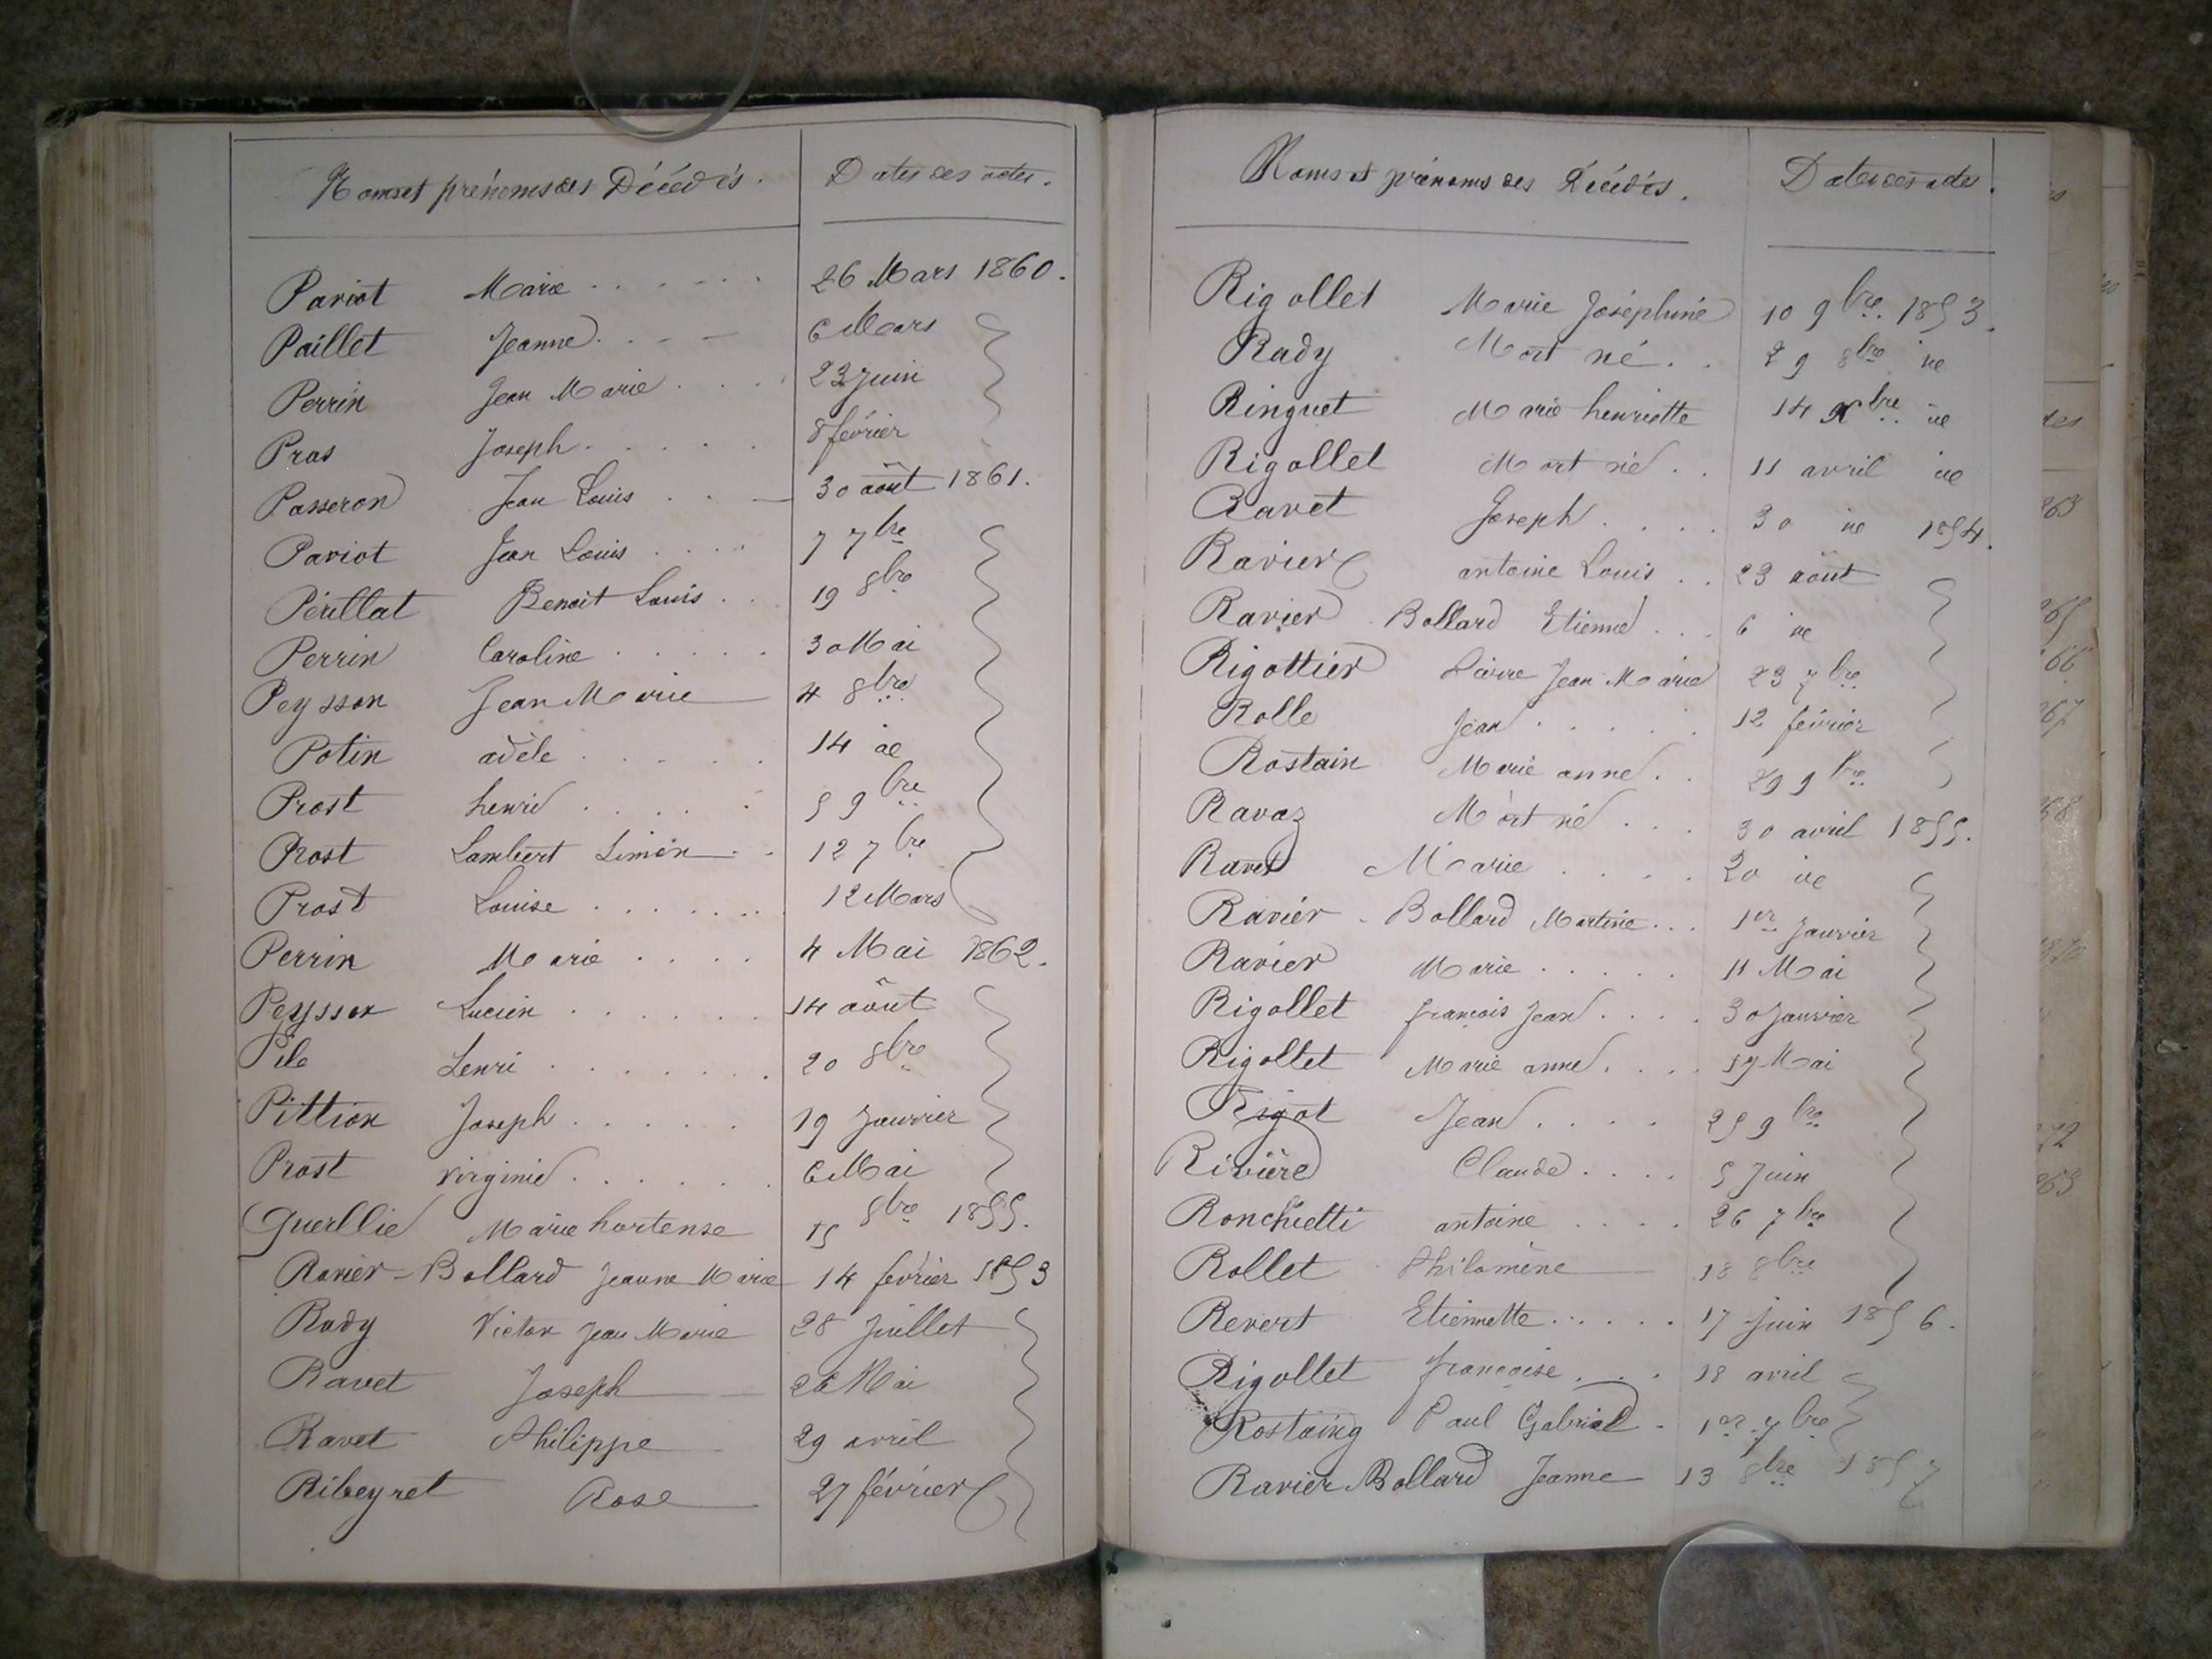 Noms et prénoms des Décédés. Dates des actes.
Pariot Marie 26 Mars 1860.
Paillet Jeanne 6 Mars
Perrin Jean Marie 23 Juin
Pras Joseph 8 février
Passeron Jean Louis 30 août 1861.
Pariot Jean Louis 7 7bre
Périllat Benoit Louis 19 8bre
Perrin Caroline 30 Mai
Peysson Jean Marie 4 8bre
Potin adèle 14 ae
Prost henri 5 9bre
Prost Lambert Simon 12 7bre
Prost Louise 12 Mars
Perrin Marie 4 Mai 1862.
Peysson Lucien 14 août
Pile henri 20 8bre
Pittion Joseph 19 Janvier
Prost Virginie 6 Mai
Querllie Marie hortense 15 8bre 1855.
Ravier-Bollard Jeanne Marie 14 février 1853
Rady Victor Jean Marie 28 Juillet
Ravet Joseph 26 Mai
Ravet Philippe 29 avril
Ribeyret Rose 27 février
Noms et prénoms des Décédés. Dates des actes.
Rigollet Marie Joséphine 10 9bre. 1853.
Rady Mort né 29 8bre ie
Ringuet Marie henriette 14 Xbre ie
Rigollet Mort né 11 avril ie
Ravet Joseph 30 ie 1854.
Ravier antoine Louis 23 août
Ravier Bollard Etienne 6 ie
Rigottier Pierre Jean Marie 23 7bre
Rolle Jean 12 février
Rostain Marie anne 29 9bre
Ravaz Mort né 30 avril 1855.
Ravet Marie 20 ie
Ravier-Bollard Martine 1er Janvier
Ravier Marie 11 Mai
Rigollet françois Jean 30 Janvier
Rigollet Marie anne 17 Mai
Rigot Jean 25 9bre
Rivière Claude 5 Juin
Ronchietti antoine 26 7bre
Rollet Philomène 18 8bre
Revert Etiennette 17 Juin 1856.
Rigollet françoise 18 avril
Rostaing Paul Gabriel 1er 7bre
Ravier Bollard Jeanne 13 8bre 1857